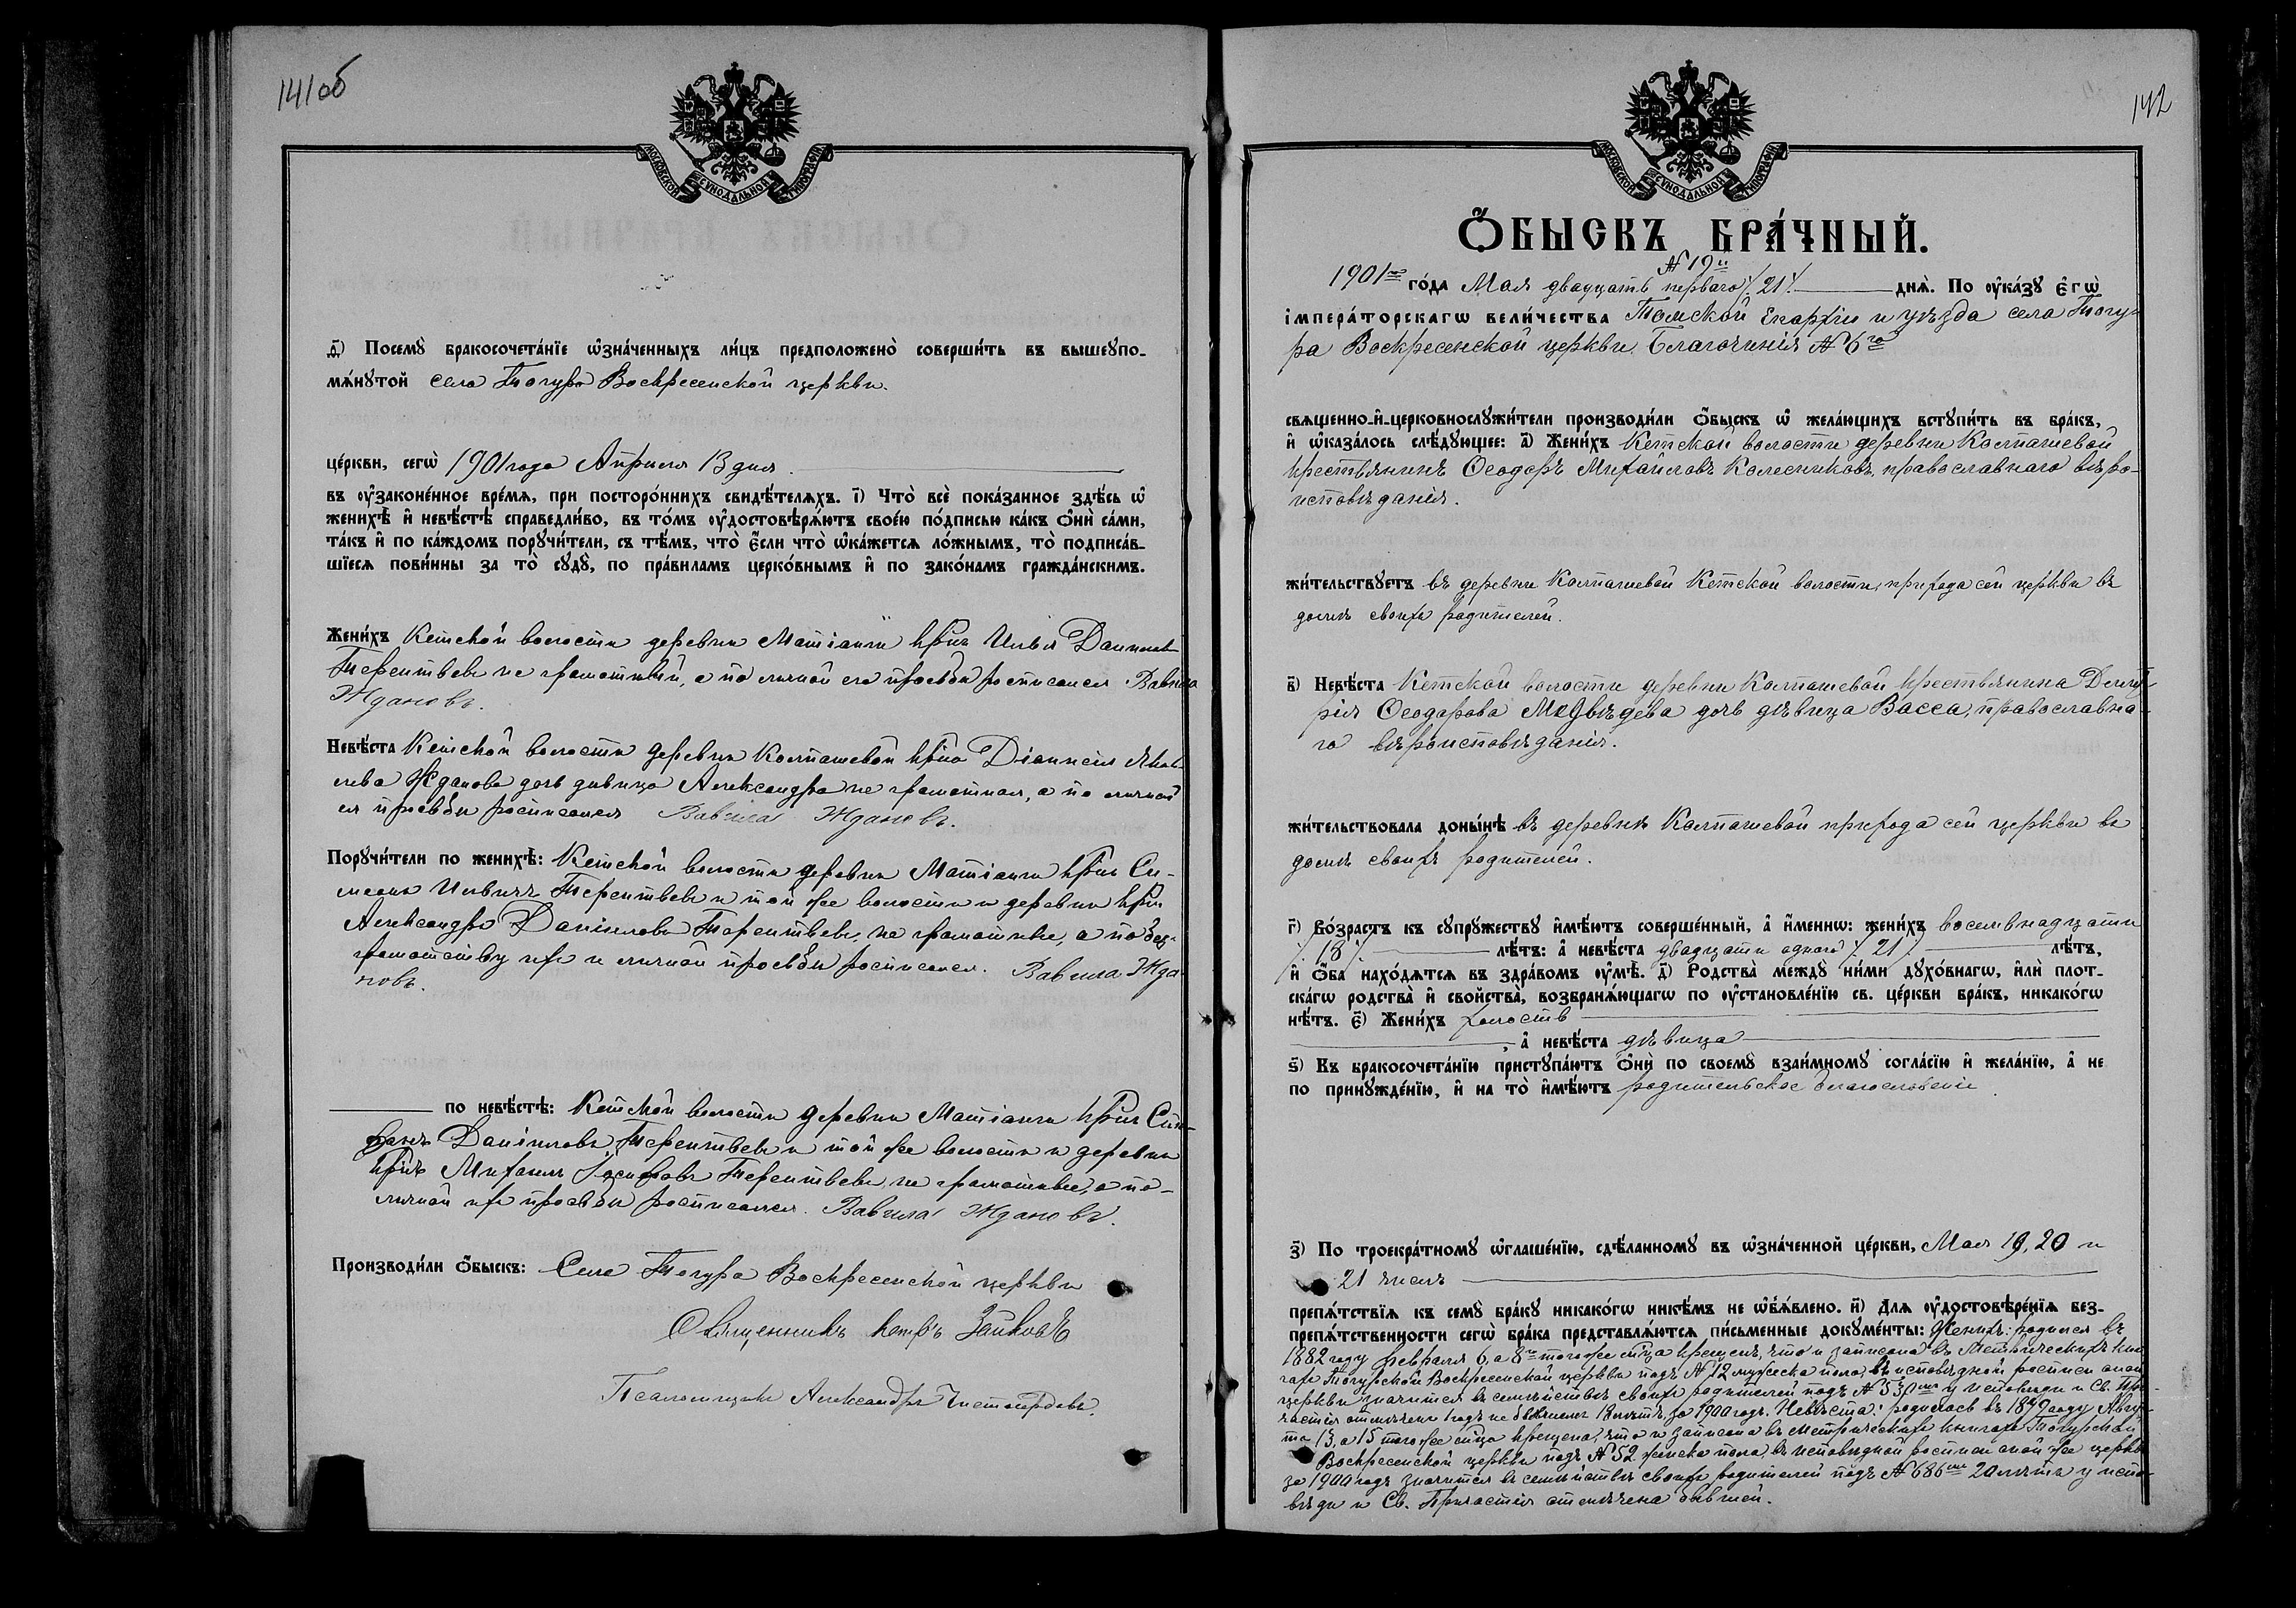 141об
МОСКОВСКОЙ СѴНОДАЛЬНОЙ ТИПОГРАФІИ
д҃) Посемꙋ̀ бракосочета́нїе ѡ҆зна́ченныхъ ли́цъ предположено̀ соверши́ть въ вышеупо-
мѧ́нꙋтой села Тогура Воскресенской церкви.
це́ркви, сегѡ̀ 1901 года Апреля 13 дня.
въ ᲂу҆зако́не́нное вре́мѧ, при посторо́ннихъ свидѣ́телѧхъ. і҃) Что̀ всѐ пока́занное здѣ́сь ѡ҆
женихѣ̀ и҆ невѣ́стѣ справедли́во, въ то́мъ ᲂу҆достовѣрѧ́ютъ свое́ю по́дписью ка́къ ѻ҆нѝ са́ми,
та́къ и҆ по ка́ждомъ порꙋчи́тели, съ тѣ́мъ, что̀ е҆́сли что̀ ѡ҆ка́жетсѧ ло́жнымъ, то̀ подписа́в-
шїесѧ пови́нны за то̀ сꙋдꙋ̀, по пра́виламъ церко́внымъ и҆ по зако́намъ гражда́нскимъ.
Жени́хъ Кетской волости деревни Матіанги крнъ Илья Даниловъ
Терентьевъ не грамотный, а по личной его просьбѣ росписался Вавила
Ждановъ.
Невѣ́ста Кетской волости деревни Колпашевой крна Діонисія Яков-
лева Жданова дочь дѣвица Александра не грамотная, а по личной
ея просьбѣ росписался Вавила Ждановъ.
Порꙋчи́тели по женихѣ̀: Кетской волости деревни Матіанги крнъ Си-
меонъ Ильинъ Терентьевъ и той же волости и деревни крнъ
Александръ Даніиловъ Терентьевъ, не грамотные, а по без-
грамотству ихъ и личной просьбѣ росписался. Вавила Жда
новъ.
по невѣ́стѣ: Кетской волости деревни Матіанги крнъ Сте-
фанъ Даніиловъ Терентьевъ и той же волости и деревни
крнъ Михаилъ Іосифовъ Терентьевъ, не грамотные, а по-
личной ихъ просьбѣ росписался. Вавила Ждановъ.
Производи́ли ѻ҆́быскъ: Села Тогура Воскресенской церкви
Священникъ Петръ Зайковъ
Псаломщикъ Александръ Чистосердовъ.
142
МОСКОВСКОЙ СѴНОДАЛЬНОЙ ТИПОГРАФІИ
Ѻ҆́БЫСКЪ БРА́ЧНЫЙ.
№ 19й
1901го го́да Мая двадцать перваго /21/ днѧ̀. По ᲂу҆ка́зꙋ Е҆гѡ̀
і҆мпера́торскагѡ вели́чества Томской Епархіи и уѣзда села Тогу-
ра Воскресенской церкви. Благочинія № 6го
свѧщенно-и҆-церковнослꙋжи́тели производи́ли ѻ҆́быскъ ѡ҆ жела́ющихъ встꙋпи́ть въ бра́къ,
и҆ ѡ҆каза́лось слѣ́дꙋющее: а҃) Жени́хъ Кетской волости деревни Колпашевой
крестьянинъ Ѳеодоръ Михаиловъ Колесниковъ, православнаго вѣро-
исповѣданія.
жи́тельствꙋетъ въ деревни Колпашевой Кетской волости, прихода сей церкви въ
домѣ своихъ родителей.
в҃) Невѣ́ста Кетской волости деревни Колпашевой крестьянина Димит-
рія Ѳеодорова Медвѣдева дочь дѣвица Васса, православна-
го вѣроисповѣданія.
жи́тельствовала доны́нѣ въ деревни Колпашевой прихода сей церкви въ
домѣ своихъ родителей.
г҃) Во́зрастъ къ сꙋпрꙋ́жествꙋ и҆мѣ́ютъ соверше́нный, а҆ и҆́меннѡ: жени́хъ восемнадцати
/18/ лѣ́тъ: а҆ невѣ́ста двадцати одного /21/ лѣ́тъ,
и҆ ѻ҆́ба нахо́дѧтсѧ въ здра́вомъ ᲂу҆мѣ̀. д҃) Родства̀ междꙋ̀ ни́ми дꙋхо́внагѡ, и҆лѝ плот-
ска́гѡ родства̀ и҆ свойства̀, возбранѧ́ющагѡ по ᲂу҆становле́нїю св. це́ркви бра́къ, никако́гѡ
нѣ́тъ. є҃) Жени́хъ холостъ
, а҆ невѣ́ста дѣвица
ѕ҃) Къ бракосочета́нїю пристꙋпа́ютъ ѻ҆нѝ по своемꙋ̀ взаи́мномꙋ согла́сїю и҆ жела́нїю, а҆ не
по принꙋжде́нїю, и҆ на то̀ и҆мѣ́ютъ родительское благословеніе.
з҃) По троекра́тномꙋ ѡ҆глаше́нїю, сдѣ́ланномꙋ въ ѡ҆зна́ченной це́ркви, Мая 19, 20 и
21 числъ
препѧ́тствїѧ къ семꙋ̀ бра́кꙋ никако́гѡ никѣ́мъ не ѡ҆б̾ѧ́влено. и҃) Длѧ ᲂу҆достовѣре́нїѧ без-
препѧ́тственности сегѡ̀ бра́ка представлѧ́ютсѧ пи́сьменные докꙋме́нты: Женихъ: родился въ
1882 году февраля 6, а 8го того же мѣсяца крещенъ, что и записано въ метрическихъ кни-
гахъ Тогурской Воскресенской церкви подъ № 12 мужеска пола, въ исповѣдной росписи оной
церкви значится въ семействѣ своихъ родителей подъ № 530мъ у исповѣди и Св. При-
частія отмѣченъ 1 годъ не бывшимъ 18 лѣтъ за 1900 годъ. Невѣста: родилась въ 1879 году Авгус-
та 13, а 15 того же мѣсяца крещена, что и записано въ метрическихъ книгахъ Тогурской
Воскресенской церкви подъ № 52 женска пола, въ исповѣдной росписи оной же церкви
за 1900 годъ значится въ семействѣ своихъ родителей подъ № 686мъ 20 лѣтъ у испо-
вѣди и Св. Причастія отмѣчена бывшей.